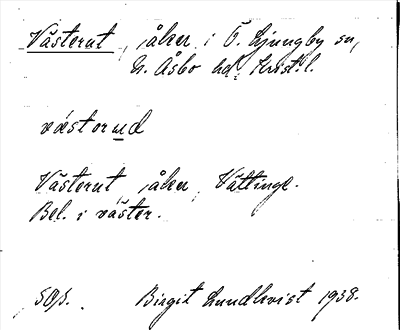 Västerut, åker i Ö. Ljungby sn,
N. Åsbo hd. Krist. l.
västorud
Västerut, åker, Vättinge.
Bel. i väster.
50/1. Birgit Lundkvist 1938.